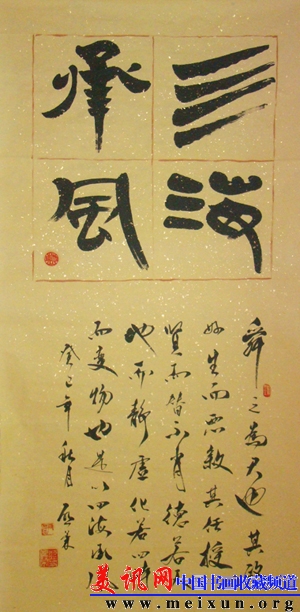 亖海
承風
舜之為君也其政
好生而惡殺其任授
賢而替不肖德若天
地而靜虛化若四時
而變物也是以四海承風
癸巳年秋月
美讯网 中国书画收藏频道
www.meixun.org